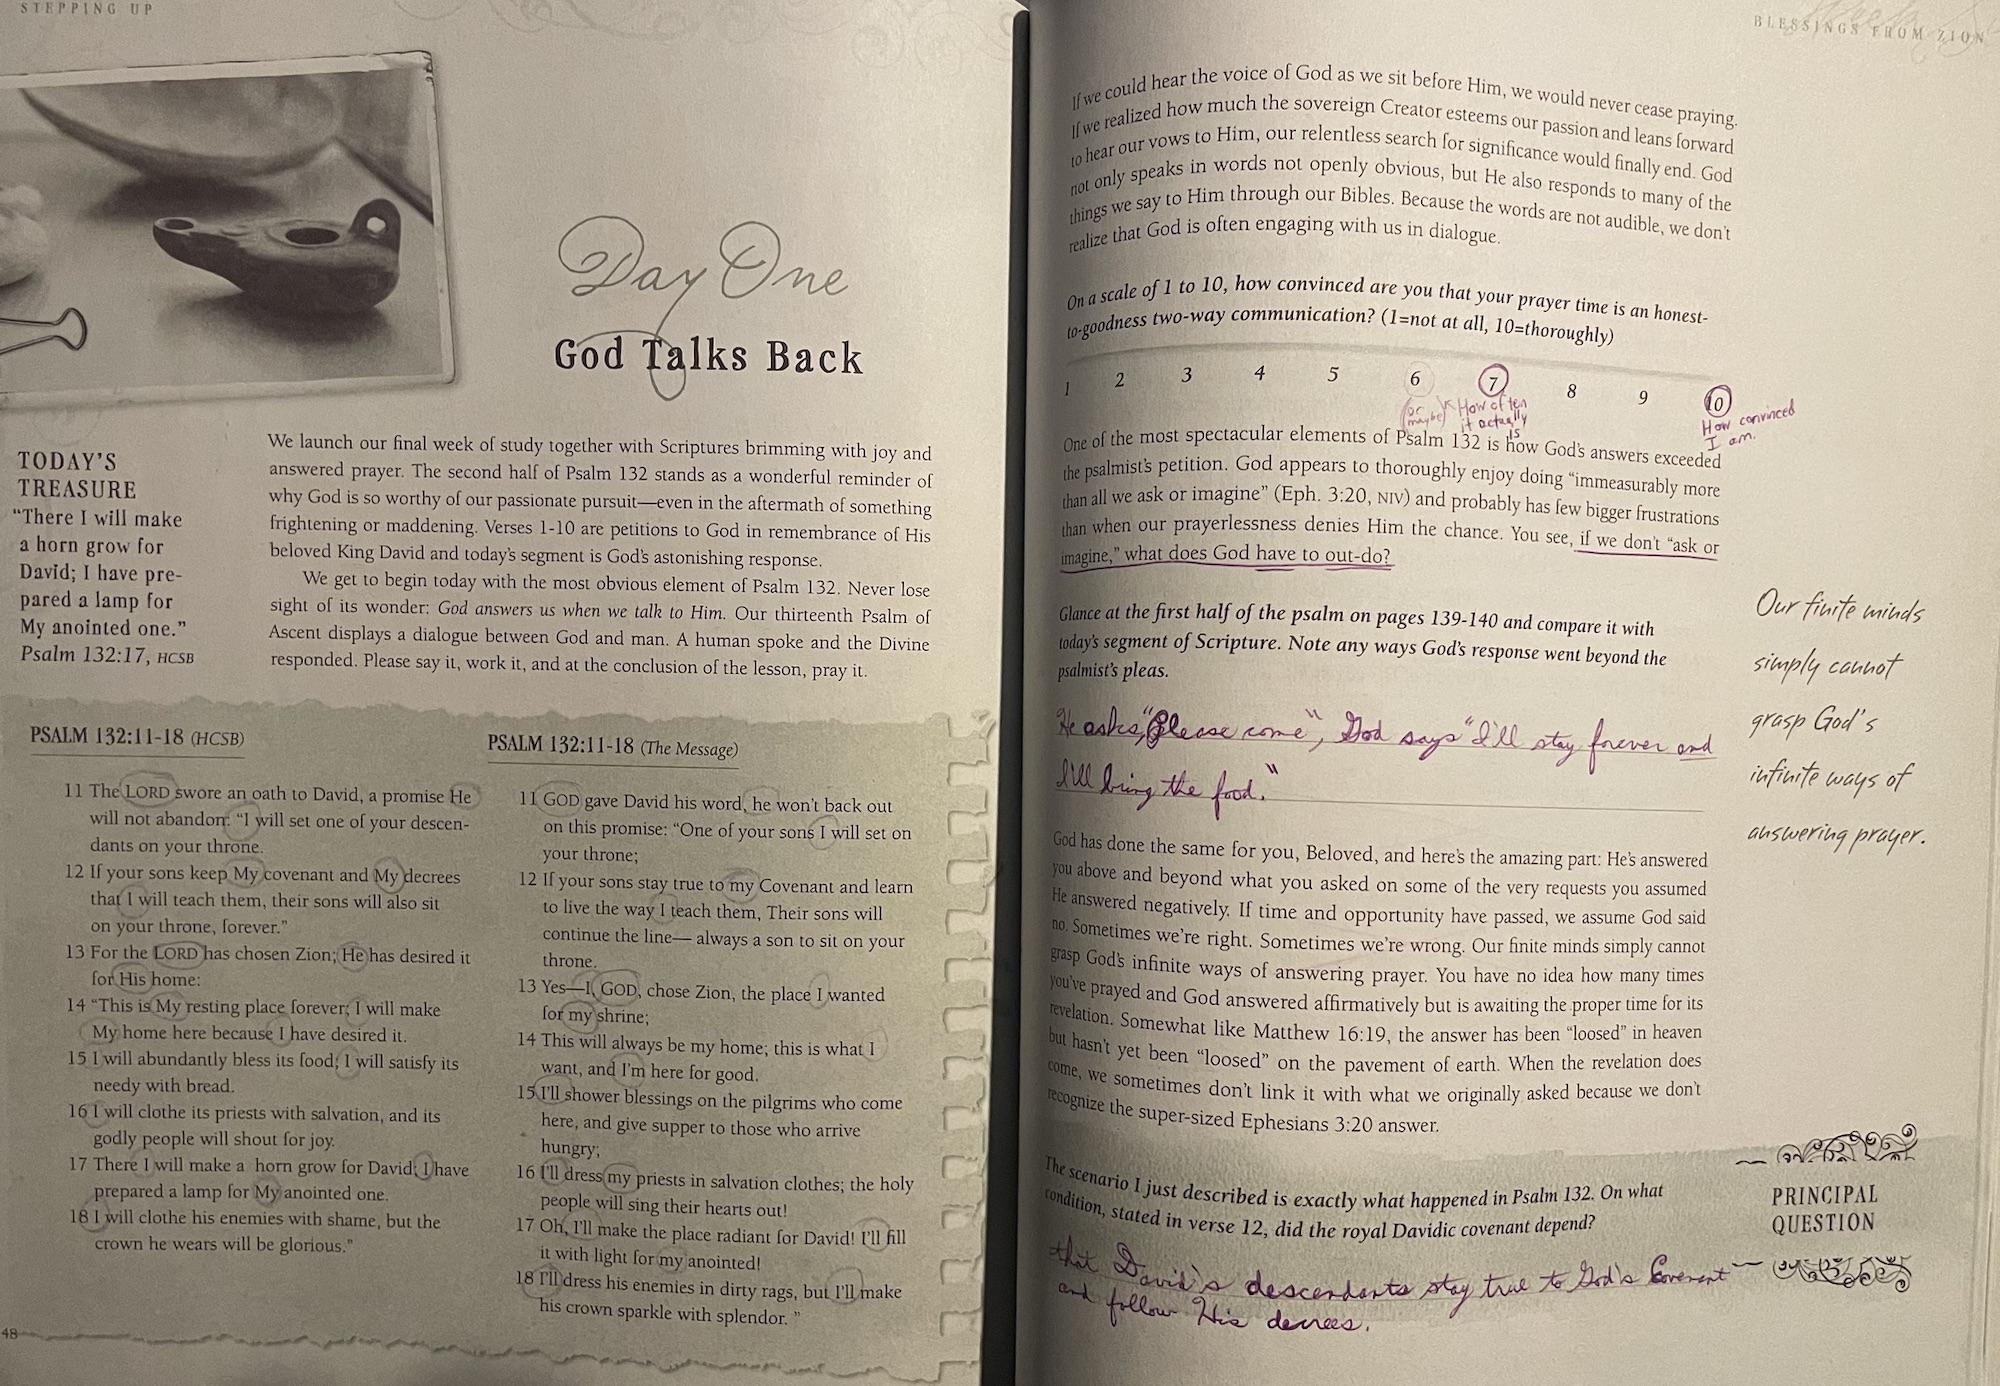 STEPPING UP
Day One
God Talks Back
TODAY'S
TREASURE
"There I will make
a horn grow for
David; I have pre-
pared a lamp for
My anointed one."
Psalm 132:17, HCSB
We launch our final week of study together with Scriptures brimming with joy and
answered prayer. The second half of Psalm 132 stands as a wonderful reminder of
why God is so worthy of our passionate pursuit—even in the aftermath of something
frightening or maddening. Verses 1-10 are petitions to God in remembrance of His
beloved King David and today's segment is God's astonishing response.
We get to begin today with the most obvious element of Psalm 132. Never lose
sight of its wonder: God answers us when we talk to Him. Our thirteenth Psalm of
Ascent displays a dialogue between God and man. A human spoke and the Divine
responded. Please say it, work it, and at the conclusion of the lesson, pray it.
PSALM 132:11-18 (HCSB)
11 The LORD swore an oath to David, a promise He
will not abandon: "I will set one of your descen-
dants on your throne.
12 If your sons keep My covenant and My decrees
that I will teach them, their sons will also sit
on your throne, forever."
13 For the LORD has chosen Zion; He has desired it
for His home:
14 "This is My resting place forever; I will make
My home here because I have desired it.
15 I will abundantly bless its food; I will satisfy its
needy with bread.
16 I will clothe its priests with salvation, and its
godly people will shout for joy.
17 There I will make a horn grow for David; I have
prepared a lamp for My anointed one.
18 I will clothe his enemies with shame, but the
crown he wears will be glorious."
PSALM 132:11-18 (The Message)
11 GOD gave David his word, he won't back out
on this promise: "One of your sons I will set on
your throne;
12 If your sons stay true to my Covenant and learn
to live the way I teach them, Their sons will
continue the line— always a son to sit on your
throne.
13 Yes—I, GOD, chose Zion, the place I wanted
for my shrine;
14 This will always be my home; this is what I
want, and I'm here for good.
15 I'll shower blessings on the pilgrims who come
here, and give supper to those who arrive
hungry;
16 I'll dress my priests in salvation clothes; the holy
people will sing their hearts out!
17 Oh, I'll make the place radiant for David! I'll fill
it with light for my anointed!
18 I'll dress his enemies in dirty rags, but I'll make
his crown sparkle with splendor. "
48
BLESSINGS FROM ZION
If we could hear the voice of God as we sit before Him, we would never cease praying.
If we realized how much the sovereign Creator esteems our passion and leans forward
to hear our vows to Him, our relentless search for significance would finally end. God
not only speaks in words not openly obvious, but He also responds to many of the
things we say to Him through our Bibles. Because the words are not audible, we don't
realize that God is often engaging with us in dialogue.
On a scale of 1 to 10, how convinced are you that your prayer time is an honest-
to-goodness two-way communication? (1=not at all, 10=thoroughly)
1 2 3 4 5 6 7 8 9 10
(or maybe)
How often
it actually
is
How convinced
I am.
One of the most spectacular elements of Psalm 132 is how God's answers exceeded
the psalmist's petition. God appears to thoroughly enjoy doing "immeasurably more
than all we ask or imagine" (Eph. 3:20, NIV) and probably has few bigger frustrations
than when our prayerlessness denies Him the chance. You see, if we don't "ask or
imagine," what does God have to out-do?
Glance at the first half of the psalm on pages 139-140 and compare it with
today's segment of Scripture. Note any ways God's response went beyond the
psalmist's pleas.
He asks, "Please come", God says "I'll stay forever and
I'll bring the food."
Our finite minds
simply cannot
grasp God's
infinite ways of
answering prayer.
God has done the same for you, Beloved, and here's the amazing part: He's answered
you above and beyond what you asked on some of the very requests you assumed
He answered negatively. If time and opportunity have passed, we assume God said
no. Sometimes we're right. Sometimes we're wrong. Our finite minds simply cannot
grasp God's infinite ways of answering prayer. You have no idea how many times
you've prayed and God answered affirmatively but is awaiting the proper time for its
revelation. Somewhat like Matthew 16:19, the answer has been "loosed" in heaven
but hasn't yet been "loosed" on the pavement of earth. When the revelation does
come, we sometimes don't link it with what we originally asked because we don't
recognize the super-sized Ephesians 3:20 answer.
The scenario I just described is exactly what happened in Psalm 132. On what
condition, stated in verse 12, did the royal Davidic covenant depend?
PRINCIPAL
QUESTION
that David's descendants stay true to God's Covenant
and follow His decrees.